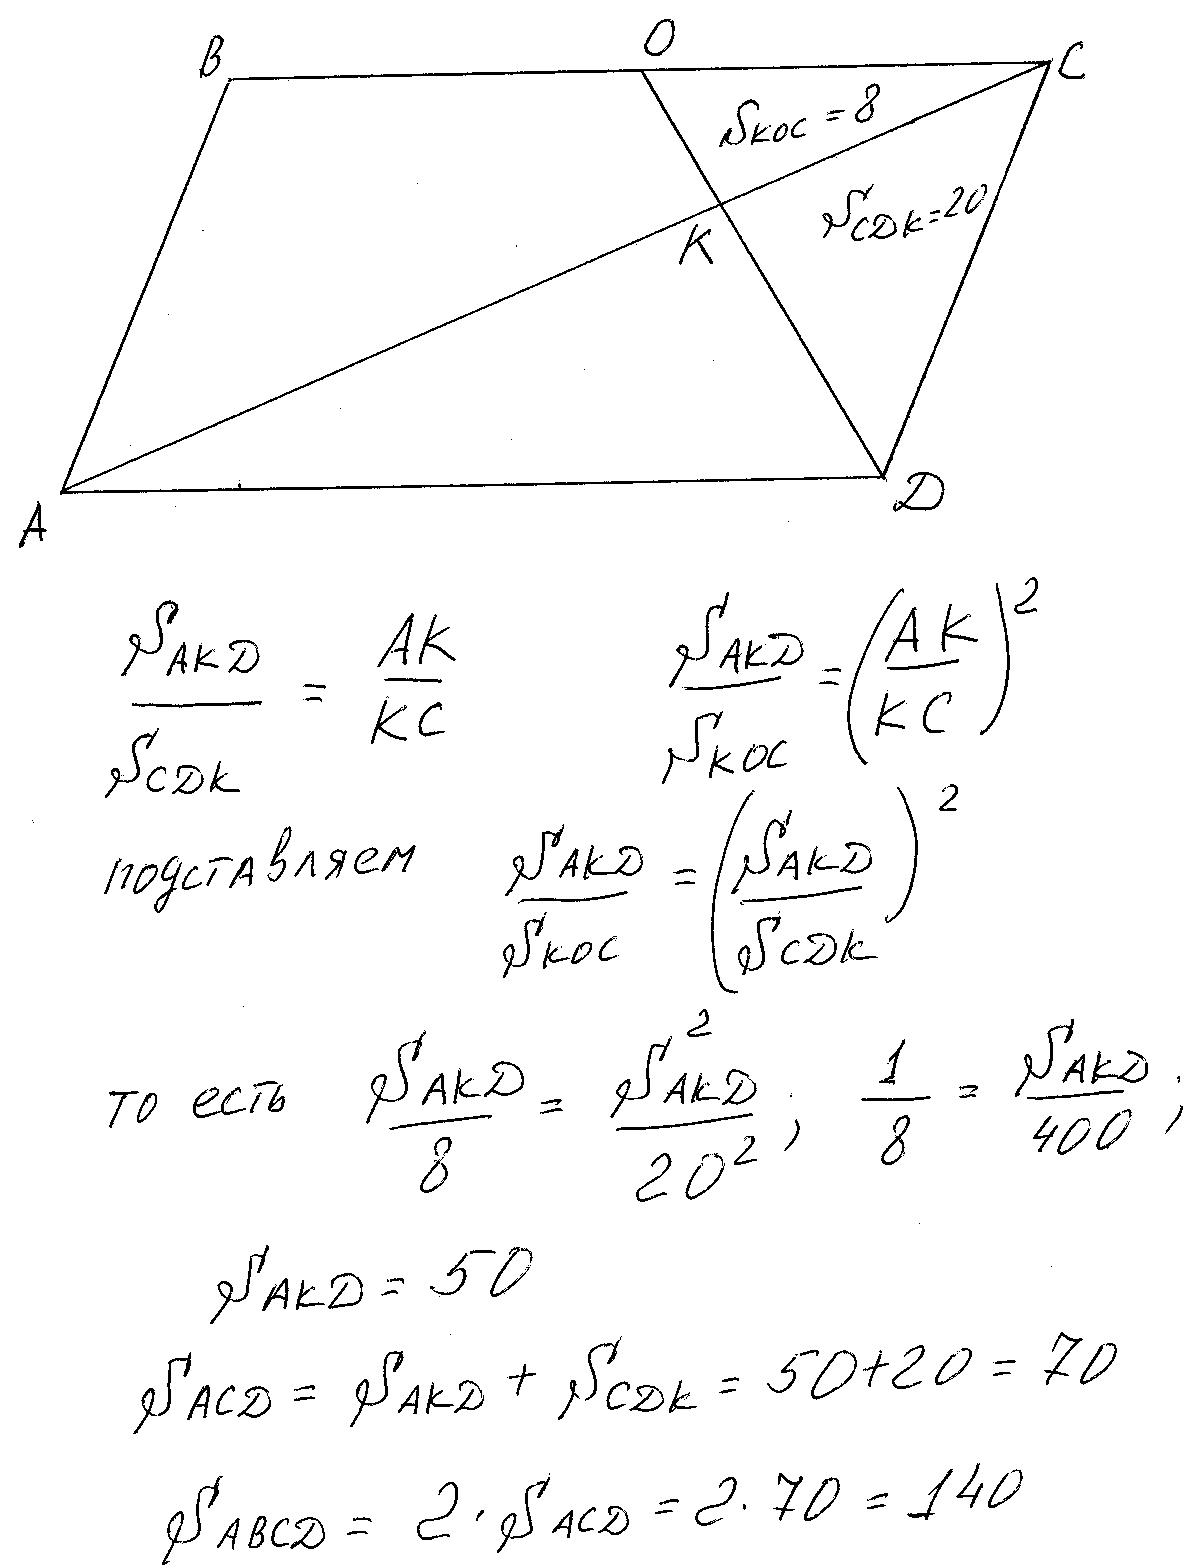 B O C
S_KOC = 8
S_CDK = 20
K
A D
S_AKD / S_CDK = AK / KC S_AKD / S_KOC = (AK / KC)²
подставляем S_AKD / S_KOC = (S_AKD / S_CDK)²
то есть S_AKD / 8 = S²_AKD / 20² ; 1 / 8 = S_AKD / 400 ;
S_AKD = 50
S_ACD = S_AKD + S_CDK = 50+20 = 70
S_ABCD = 2 · S_ACD = 2 · 70 = 140